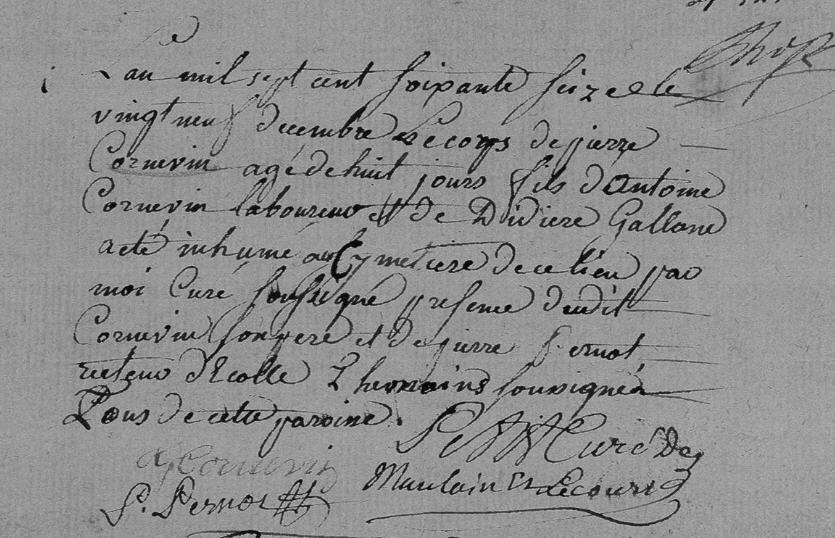 L'an mil sept cent soixante seize et le
vingt neuf decembre le corps de pierre
Cornevin agé de huit jours fils d'Antoine
Cornevin laboureur et de Didiere Galland
a eté inhumé au Cymetiere de ce lieu par
moi Curé soussigné presence dudit
Cornevin son pere et de pierre Pernot
recteur d'Ecolle Themoins soussignés
Tous de cette paroisse.
Petit Curé De
A Cornevin Maulain et Lecourt
P. Pernot